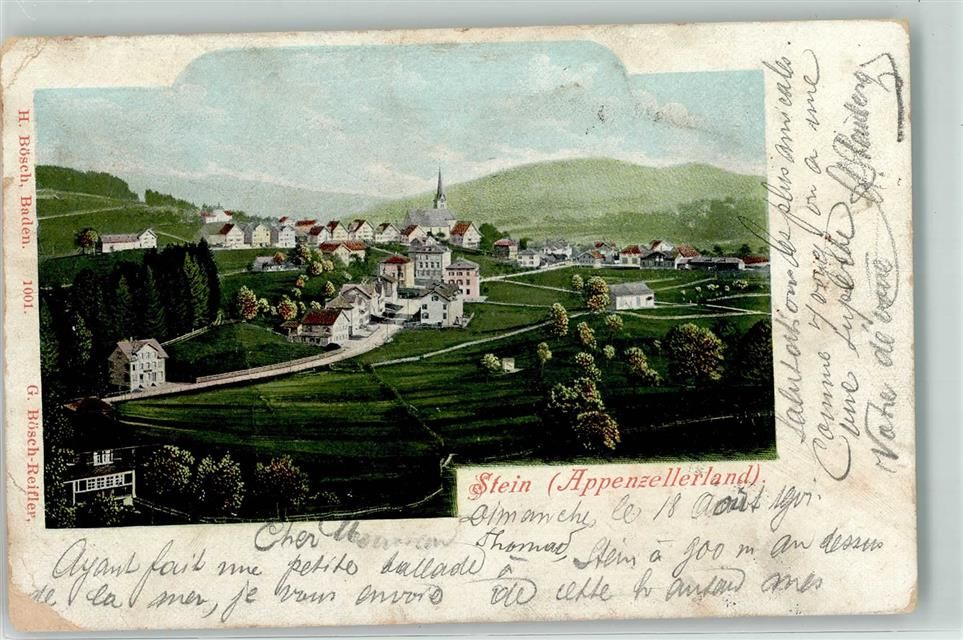 H. Bösch, Baden. 1001.
G. Bösch-Reifler,
Stein (Appenzellerland).
Dimanche, le 18 Août 1901.
Cher Monsieur Thomas,
Ayant fait une petite ballade à Stein à 900 m au dessus
de la mer, je vous envoie de cette hauteur mes
salutations les plus amicales.
Comme vous on a une
une vue
Votre dévoué